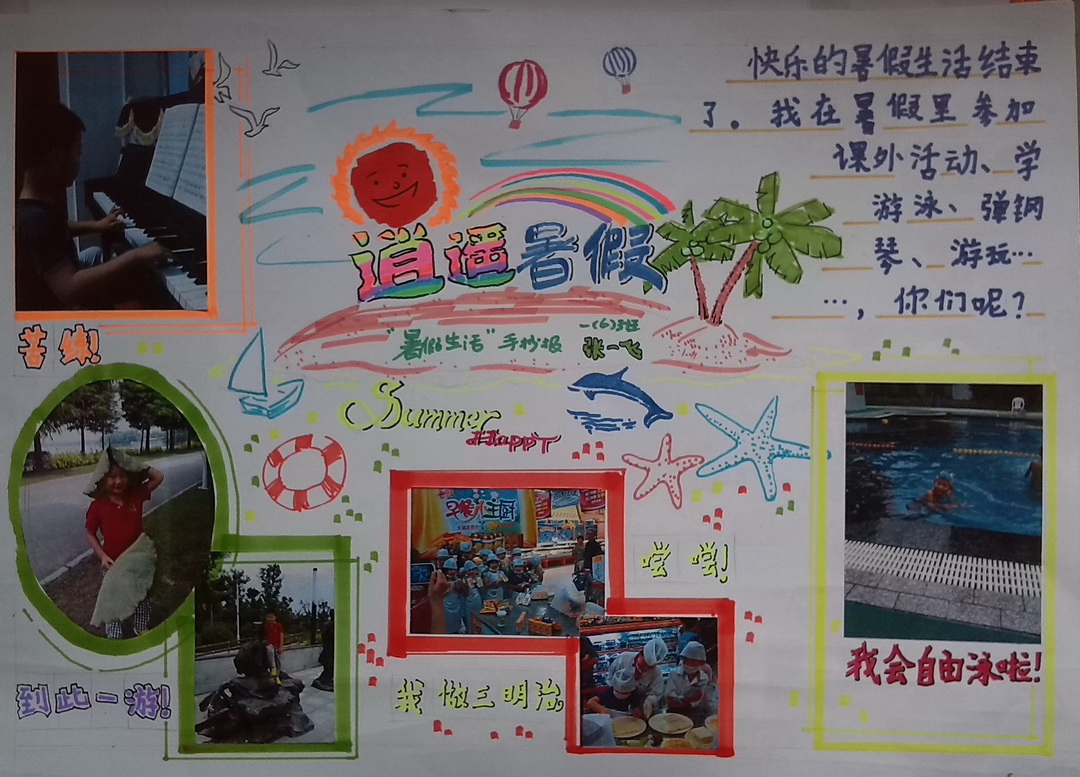 快乐的暑假生活结束
了。我在暑假里参加
课外活动、学
游泳、弹钢
琴、游玩…
…，你们呢？
逍遥暑假
"暑假生活"手抄报
一(6)班
张一飞
Summer
HAPPY
苦练！
尝尝！
我会自由泳啦！
到此一游！
我做三明治。